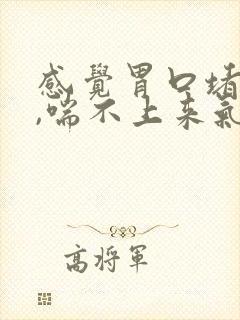 感覺胃口堵
,喘不上来氣
高将軍